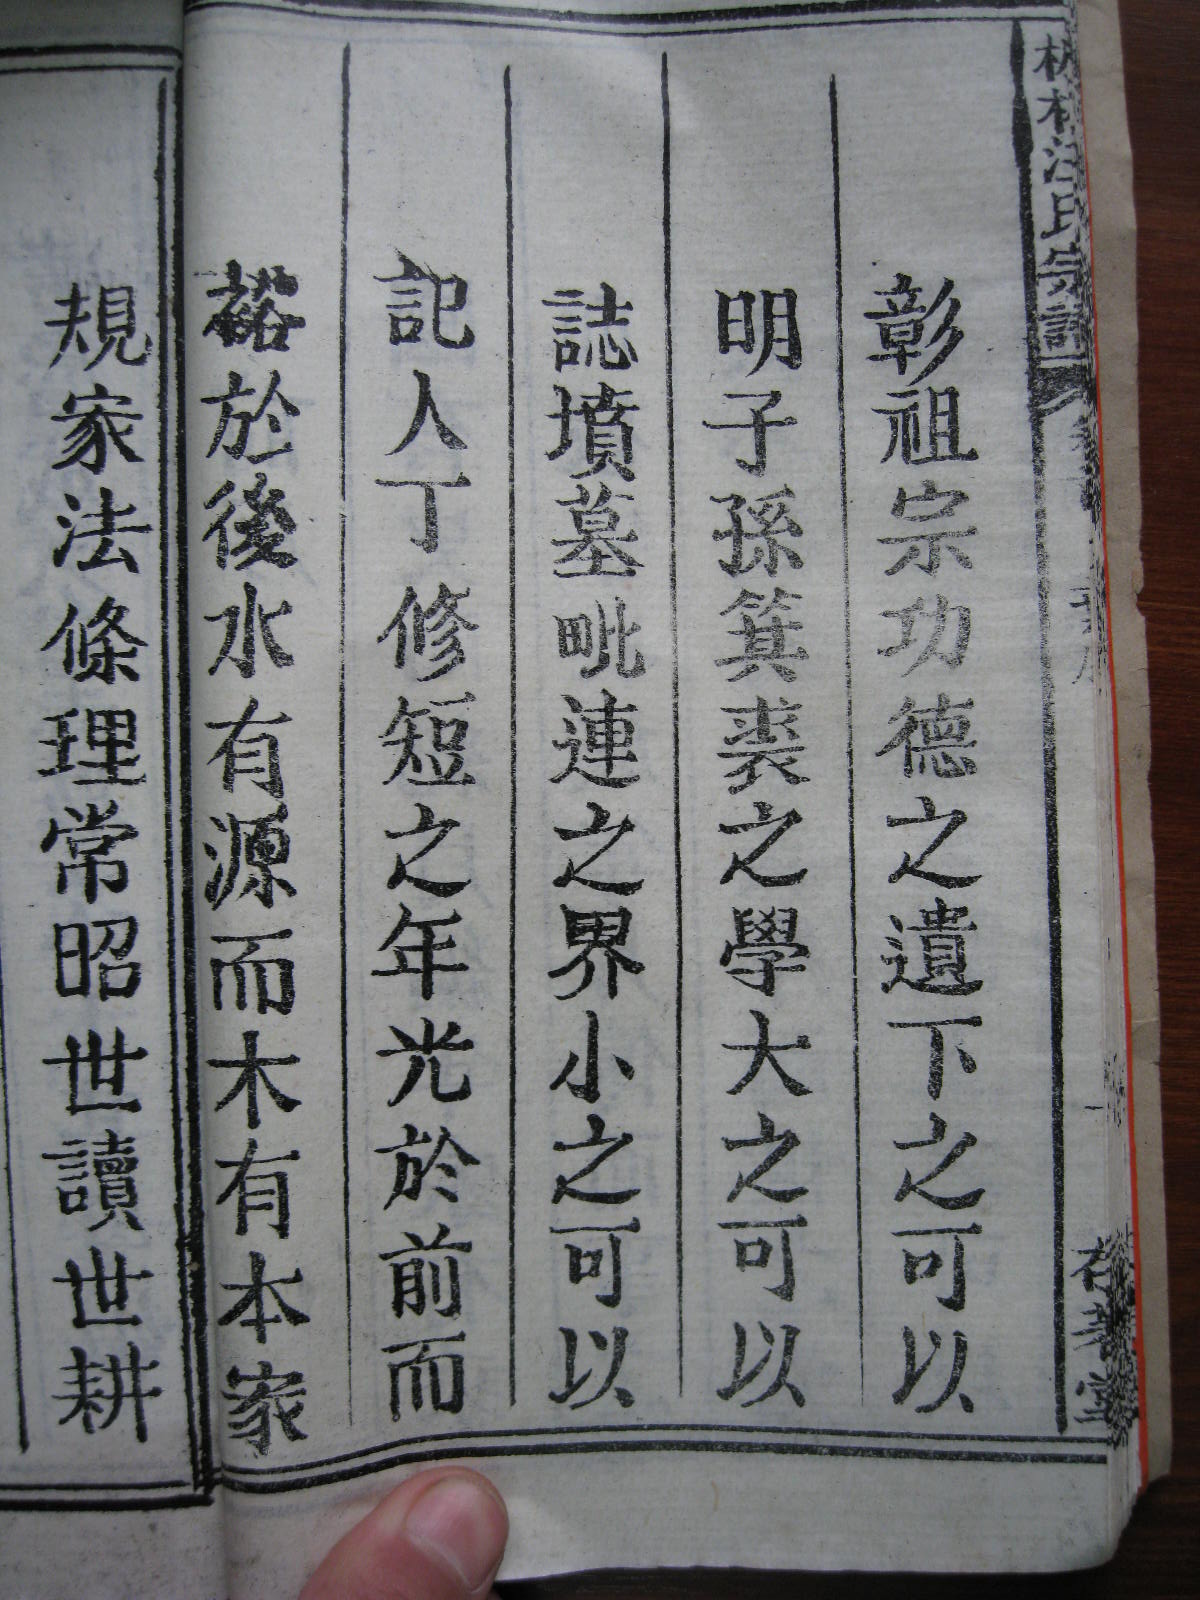 林汪氏宗譜
彰祖宗功德之遺下之可以
明子孫箕裘之學大之可以
誌墳墓毗連之界小之可以
記人丁修短之年光於前而
裕於後水有源而木有本家
規家法條理常昭世讀世耕